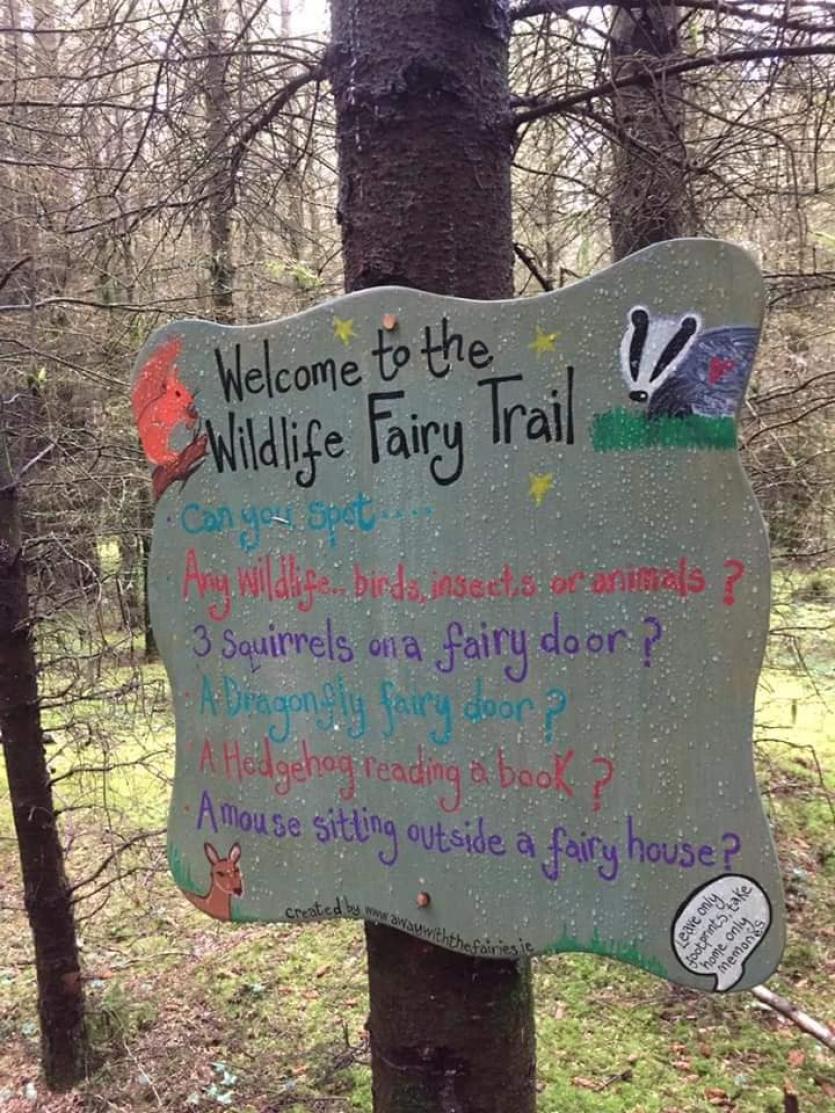 Welcome to the
Wildlife Fairy Trail
· Can you spot....
Any Wildlife.. birds, insects or animals ?
3 Squirrels on a fairy door ?
· A Dragonfly fairy door ?
· A Hedgehog reading a book ?
· A mouse sitting outside a fairy house?
created by www.awaywiththefairies.ie
Leave only
footprints, take
home only
memories